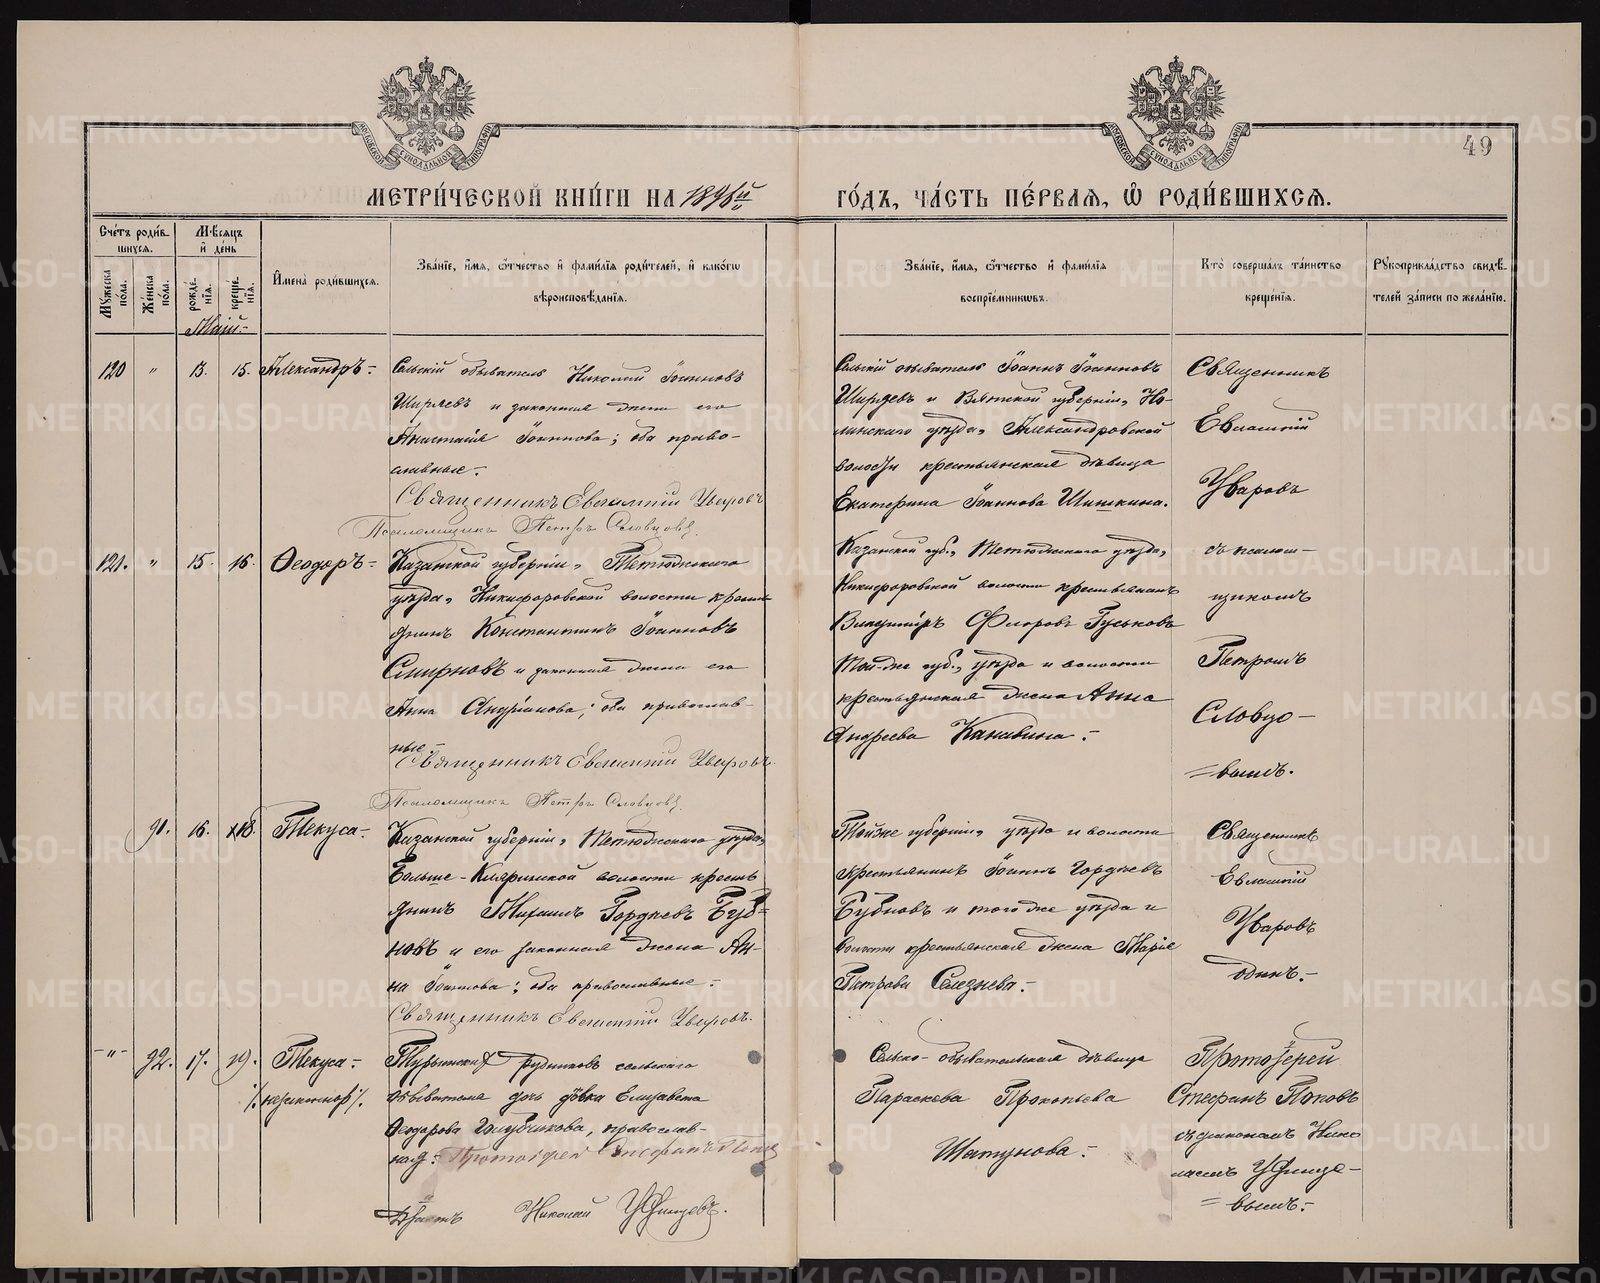 49
МЕТРИ́ЧЕСКОЙ КНИ́ГИ НА 1896й
ГО́ДЪ, ЧА́СТЬ ПЕ́РВАЯ, Ѡ РОДИ́ВШИХСЯ.
Сче́тъ роди́в-
шихся.
Му́жеска по́ла.
Же́нска по́ла.
Мѣ́сяцъ
и҆ де́нь
рожде́-нїѧ.
креще́-нїѧ.
И҆мена̀ роди́вшихсѧ.
Зва́нїе, и҆́мѧ, ѻ҆́тчество и҆ фами́лїѧ роди́телей, и҆ како́гѡ
вѣроисповѣ́данїѧ.
Зва́нїе, и҆́мѧ, ѻ҆́тчество и҆ фами́лїѧ
воспрїе́мникѡвъ.
Кто̀ соверша́лъ та́инство
креще́нїѧ.
Рꙋкоприкла́дство свидѣ́-
телей за́писи по жела́нїю.
Май.
120 " 13. 15. Александръ.
Сельскій обыватель Николай Іоанновъ
Ширяевъ и законная жена его
Анастасія Іоаннова; оба право-
славные.
Священникъ Евлампій Уваровъ
Псаломщикъ Петръ Словцовъ
Сельскій обыватель Іоаннъ Іоанновъ
Ширяевъ и Вятской губерніи, Но-
линскаго уѣзда, Александровской
волости крестьянская дѣвица
Екатерина Іоаннова Шишкина.
Священникъ
Евлампій
Уваровъ
121. " 15. 16. Ѳеодоръ
Казанской губерніи, Тетюшскаго
уѣзда, Никифоровской волости кресть-
янинъ Константинъ Іоанновъ
Смирновъ и законная жена его
Анна Андріанова; оба православ-
ные.
Священникъ Евлампій Уваровъ.
Псаломщикъ Петръ Словцовъ
Казанской губ., Тетюшскаго уѣзда,
Никифоровской волости крестьянинъ
Владиміръ Флоровъ Гуськовъ
Той-же губ., уѣзда и волости
крестьянская жена Анна
Андреева Канавина.
съ псалом-
щикомъ
Петромъ
Словцо-
вымъ.
91. 16. 18. Текуса.
Казанской губерніи, Тетюшскаго уѣзда,
Больше-Кляринской волости кресть-
янинъ Михаилъ Гордѣевъ Буб-
новъ и его законная жена Ан-
на Іоаннова; оба православные.
Священникъ Евлампій Уваровъ.
Тойже губерніи, уѣзда и волости
крестьянинъ Іоаннъ Гордѣевъ
Бубновъ и тогоже уѣзда и
волости крестьянская жена Марія
Петрова Селезнева.
Священникъ
Евлампій
Уваровъ
одинъ.
" 92. 17. 19. Текуса.
незаконнор.
Турьинскихъ рудниковъ сельскаго
обывателя дочь дѣвка Елизавета
Ѳеодорова Голубчикова, православ-
ная. Протоіерей Стефанъ Поповъ
Діаконъ Николай Уфимцевъ.
Сельско-обывательская дѣвица
Параскева Прокопьева
Шатунова.
Протоіерей
Стефанъ Поповъ
съ діакономъ Нико-
лаемъ Уфимце-
вымъ.